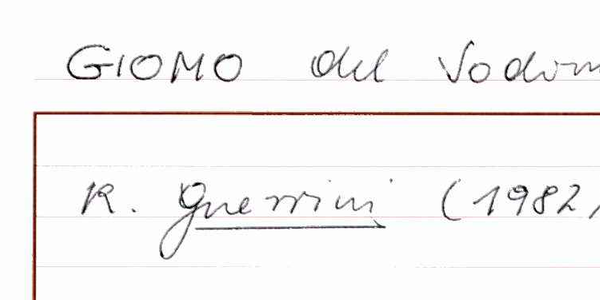 GIOMO del Sodom
R. Guerrini (1982,